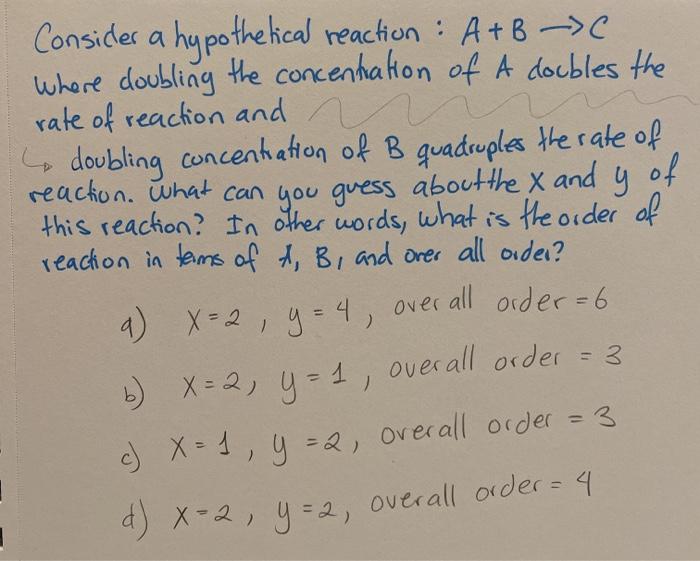 Consider a hypothetical reaction : A + B → C
where doubling the concentration of A doubles the
rate of reaction and
↳ doubling concentration of B quadruples the rate of
reaction. What can you guess about the x and y of
this reaction? In other words, what is the order of
reaction in terms of A, B, and over all order?
a) X = 2 , y = 4 , over all order = 6
b) X = 2, y = 1 , overall order = 3
c) X = 1 , y = 2, overall order = 3
d) X = 2 , y = 2, overall order = 4